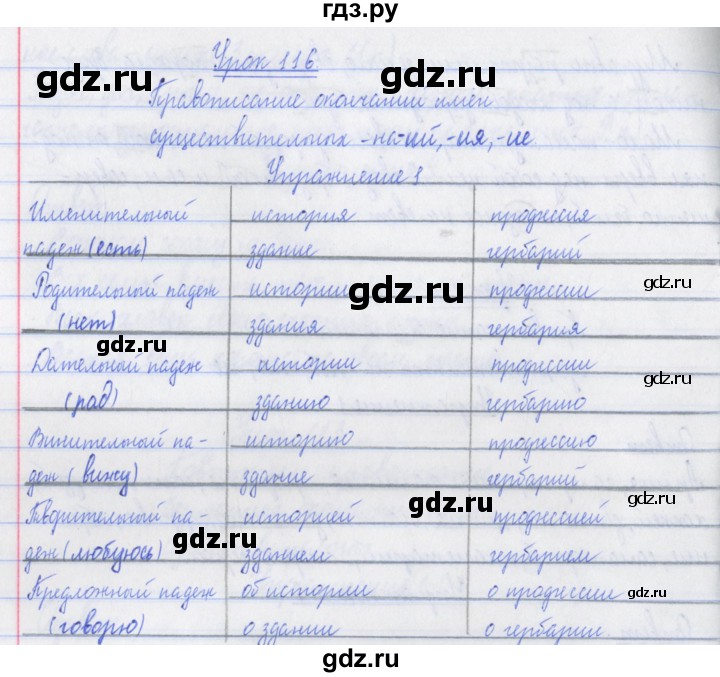 гдз.ру
Урок 116
gdz.ru gdz.ru
Правописание окончаний имён
существительных -на-ий, -ия, -ие.
Упражнение 1
Именительный история профессия
падеж (есть) здание гербарий
Родительный падеж истории профессии
gdz.ru gdz.ru
(нет) здания гербария
gdz.ru
Дательный падеж истории профессии
gdz.ru
(рад) зданию гербарию
Винительный па- историю профессию
деж (вижу) здание гербарий
gdz.ru gdz.ru
Творительный па- историей профессией
gdz.ru
деж (любуюсь) зданием гербарием
Предложный падеж об истории о профессии
gdz.ru
(говорю) о здании о гербарии.
gdz.ru